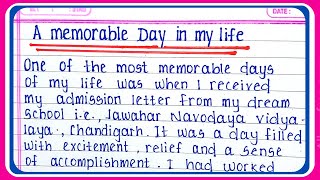 DATE:
A memorable Day in my life
One of the most memorable days
of my life was when I received
my admission letter from my dream
school i.e., Jawahar Navodaya vidya-
laya., Chandigarh. It was a day filled
with excitement, relief and a sense
of accomplishment. I had worked